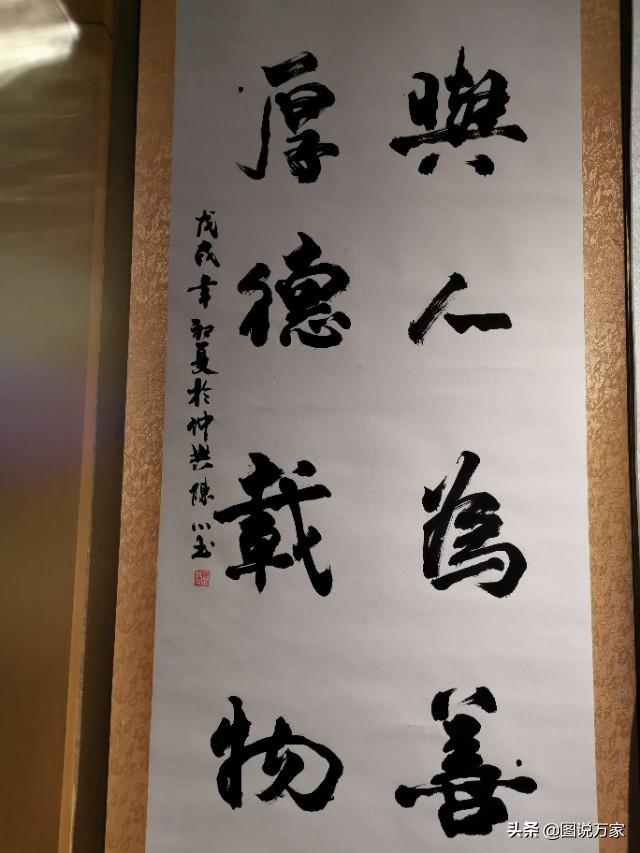 與人為善
厚德載物
戊戌年初夏於仲興陳小玉
头条 @图说万家